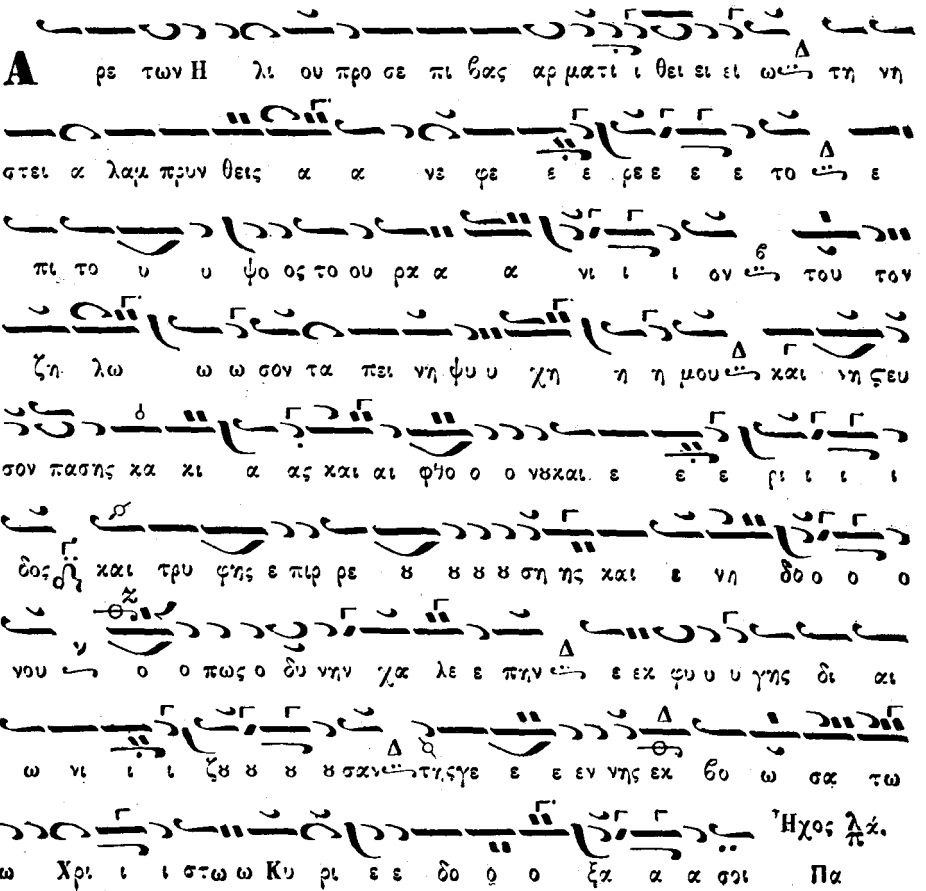 Α ρε των Η λι ου προ σε πι βας αρ ματι ι θει ει ει ω Δ τη νη
στει α λαμ πρυν θεις α α νε φε ε ε ρε ε ε ε το Δ ε
πι το υ υ ψο ος το ου ρα α α νι ι ι ον β του τον
ζη λω ω ω σον τα πει νη ψυ υ χη η η μου Δ και νη ςευ
σον πασης κα κι α ας και αι φθο ο ο νȣ και ε ε ε ρι ι ι ι
δος Γ και τρυ φης ε πιρ ρε ȣ ȣ ȣ ȣ ση ης και ε νη δο ο ο ο
νου ν ο ο πως ο δυ νην χα λε ε πην Δ ε εκ φυ υ υ γης δι αι
ω νι ι ι ζȣ ȣ ȣ ȣ σαν Δ της γε ε ε εν νης εκ βο ω σα τω
ω Χρι ι ι στω ω Κυ ρι ε ε δο ο ο ξα α α σοι Ἦχος λ π ά. Πα